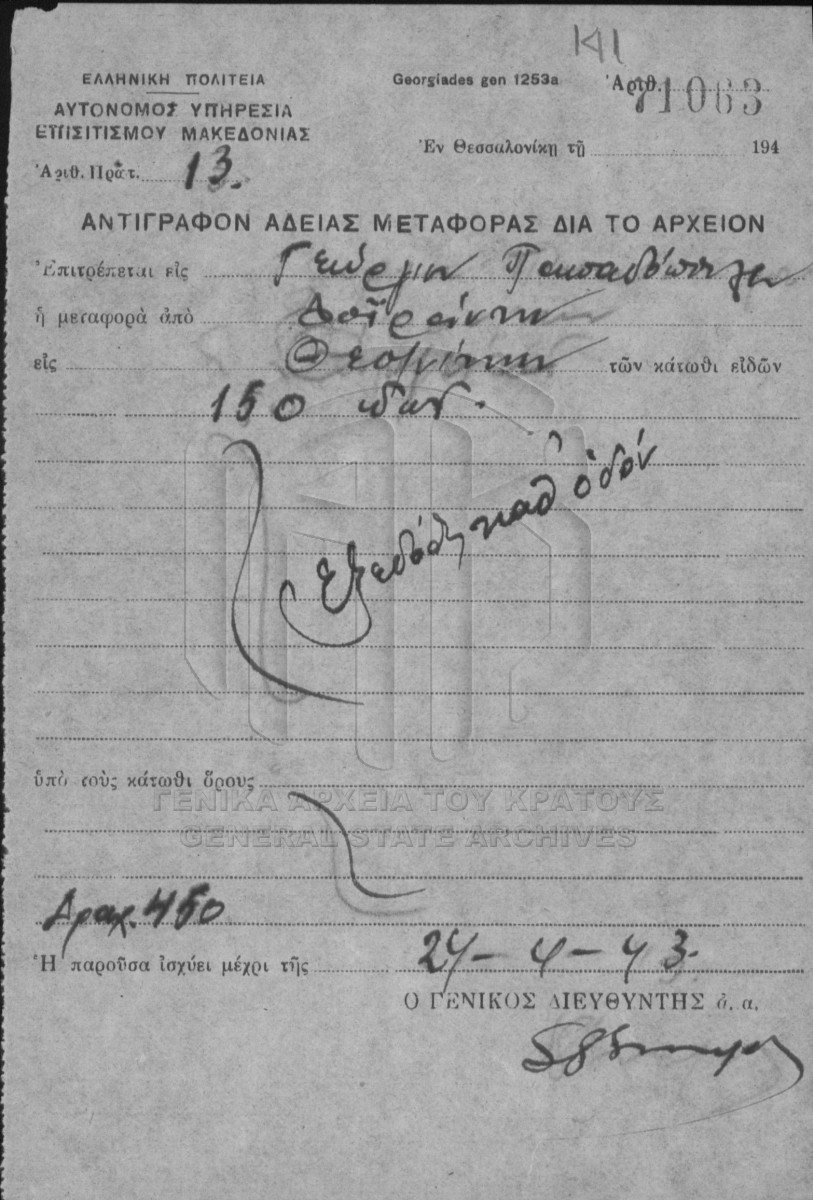 141
ΕΛΛΗΝΙΚΗ ΠΟΛΙΤΕΙΑ
ΑΥΤΟΝΟΜΟΣ ΥΠΗΡΕΣΙΑ
ΕΠΙΣΙΤΙΣΜΟΥ ΜΑΚΕΔΟΝΙΑΣ
Georgiades gen 1253a
Ἀριθ. 71063
Ἀριθ. Πρωτ. 13.
Ἐν Θεσσαλονίκῃ τῇ 194
ΑΝΤΙΓΡΑΦΟΝ ΑΔΕΙΑΣ ΜΕΤΑΦΟΡΑΣ ΔΙΑ ΤΟ ΑΡΧΕΙΟΝ
Ἐπιτρέπεται εἰς Γεώργιον Παπαδόπουλον
ἡ μεταφορὰ ἀπὸ Δοϊράνην
εἰς Θεσ/νίκην τῶν κάτωθι εἰδῶν
150
Ἐξεδόθη καθ' ὁδόν
ὑπὸ τοὺς κάτωθι ὅρους
ΓΕΝΙΚΑ ΑΡΧΕΙΑ ΤΟΥ ΚΡΑΤΟΥΣ
GENERAL STATE ARCHIVES
Δραχ. 450
Ἡ παροῦσα ἰσχύει μέχρι τῆς 24-4-43.
Ο ΓΕΝΙΚΟΣ ΔΙΕΥΘΥΝΤΗΣ ὁ. α.